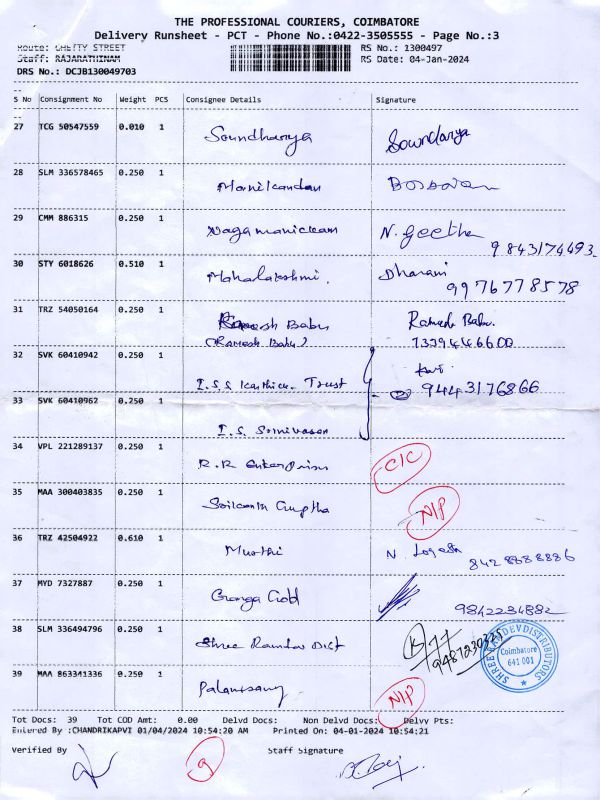 THE PROFESSIONAL COURIERS, COIMBATORE
Delivery Runsheet - PCT - Phone No.:0422-3505555 - Page No.:3
Route: CHETTY STREET RS No.: 1300497
Staff: RAJARATHINAM RS Date: 04-Jan-2024
DRS No.: DCJB130049703
S No Consignment No Weight PCS Consignee Details Signature
27 TCG 50547559 0.010 1 Soundharya Soundarya
28 SLM 336578465 0.250 1 Manikandan
29 CMM 886315 0.250 1 Nagamanickam N. Geetha
9843174493.
30 STY 6018626 0.510 1 Mahalakshmi. Dharani
9976778578
31 TRZ 54050164 0.250 1 Ramesh Babu Ramesh Babu.
(Ramesh Babu) 7339446600
32 SVK 60410942 0.250 1 I.S.S Karthica Trust
9443176866
33 SVK 60410962 0.250 1 I.S. Srinivasan
34 VPL 221289137 0.250 1 R.R Enterprises C/C
35 MAA 300403835 0.250 1 Guptha N/P
36 TRZ 42504922 0.610 1 Murthi N. Logesh
8428888886
37 MYD 7327887 0.250 1 Ganga Gold
9842234882
38 SLM 336494796 0.250 1 Shree Ramdev Dist
9487230325
SHREE RAMDEV DISTRIBUTORS
Coimbatore
641 001
39 MAA 863341336 0.250 1 Palanisamy N/P
Tot Docs: 39 Tot COD Amt: 0.00 Delvd Docs: Non Delvd Docs: Delvy Pts:
Entered By :CHANDRIKAPVI 01/04/2024 10:54:20 AM Printed On: 04-01-2024 10:54:21
Verified By 9 Staff Signature